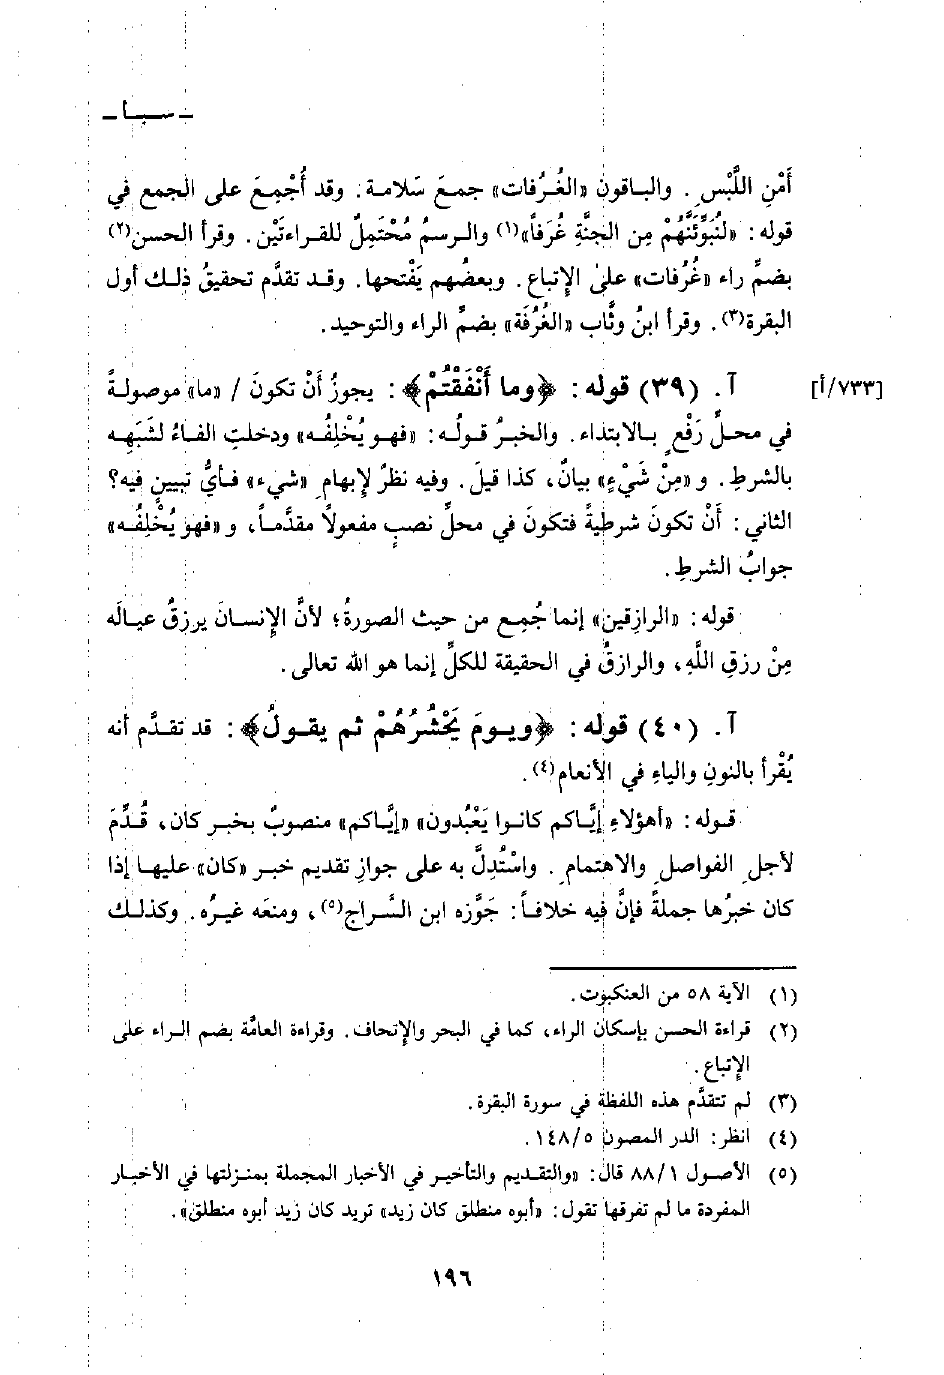 ـ سـبـأ ـ
أَمْنِ اللَّبْسِ. والباقون «الغُرُفات» جمعَ سَلامة. وقد أُجْمِعَ على الجمع في
قوله: «لَنُبَوِّئَنَّهُمْ مِن الجنَّةِ غُرَفاً»(١) والرسمُ مُحْتَمِلٌ للقراءتَيْن. وقرأ الحسن(٢)
بضمِّ راء «غُرُفات» على الإِتباع. وبعضُهم يَفْتحها. وقد تقدَّم تحقيقُ ذلك أول
البقرة(٣). وقرأ ابنُ وثَّاب «الغُرُفَة» بضمِّ الراء والتوحيد.
[٧٣٣/أ] آ. (٣٩) قوله: ﴿وما أَنْفَقْتُمْ﴾: يجوزُ أَنْ تكونَ / «ما» موصولةً
في محلِّ رَفْعٍ بالابتداء. والخبرُ قولُه: «فهو يُخْلِفُه» ودخلتِ الفاءُ لشَبَهِه
بالشرطِ. و «مِنْ شَيْءٍ» بيانٌ، كذا قيلَ. وفيه نظرٌ لإِبهامِ «شيء» فأيُّ تبيينٍ فيه؟
الثاني: أَنْ تكونَ شرطيةً فتكونَ في محلِّ نصبٍ مفعولاً مقدَّماً، و «فهو يُخْلِفُه»
جوابُ الشرطِ.
قوله: «الرازِقين» إنما جُمِع من حيث الصورةُ؛ لأنَّ الإِنسانَ يرزقُ عيالَه
مِنْ رزقِ اللَّهِ، والرازقُ في الحقيقة للكلِّ إنما هو الله تعالى.
آ. (٤٠) قوله: ﴿ويومَ يَحْشُرُهُمْ ثم يقولُ﴾: قد تقدَّم أنه
يُقْرأ بالنونِ والياءِ في الأنعام(٤).
قوله: «أهؤلاءِ إيَّاكم كانوا يَعْبُدون» «إيَّاكم» منصوبٌ بخبر كان، قُدِّمَ
لأجلِ الفواصلِ والاهتمامِ. واسْتُدِلَّ به على جوازِ تقديم خبر «كان» عليها إذا
كان خبرُها جملةً فإنَّ فيه خلافاً: جَوَّزه ابن السَّراج(٥)، ومنعَه غيرُه. وكذلك
(١) الآية ٥٨ من العنكبوت.
(٢) قراءة الحسن بإسكان الراء، كما في البحر والإتحاف. وقراءة العامَّة بضم الراء على
الإتباع.
(٣) لم تتقدَّم هذه اللفظة في سورة البقرة.
(٤) انظر: الدر المصون ١٤٨/٥.
(٥) الأصول ٨٨/١ قال: «والتقديم والتأخير في الأخبار المجملة بمنزلتها في الأخبار
المفردة ما لم تفرقها تقول: «أبوه منطلق كان زيد» تريد كان زيد أبوه منطلق».
١٩٦